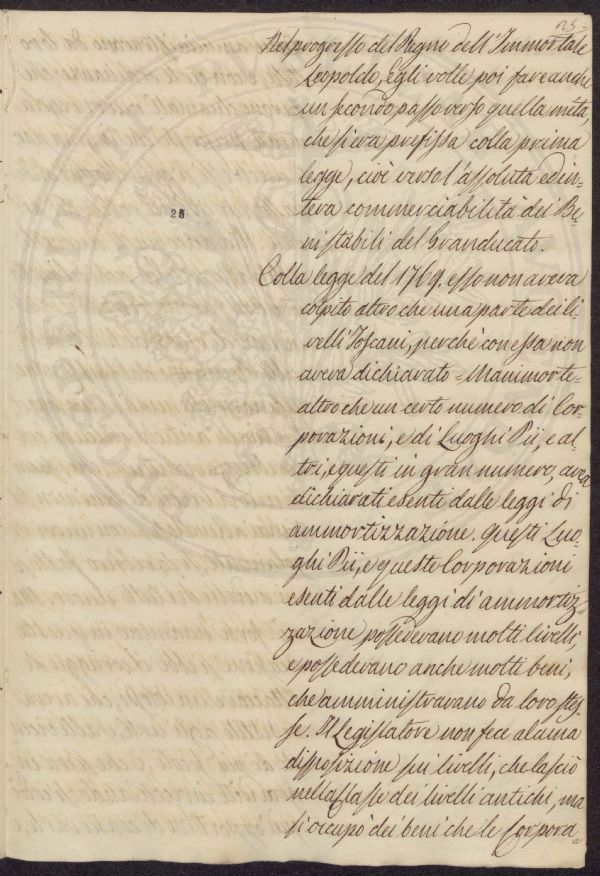 25.
Nel progresso del Regno dell'Immortale
Leopoldo, Egli volle poi fare anche
un secondo passo verso quella méta,
che si era prefissa colla prima
legge, cioè verso l'assoluta ed in-
tera commerciabilità dei Be-
ni stabili del Granducato.
25
Colla legge del 1769. esso non aveva
colpito altro che una parte dei li-
velli Toscani, perchè con essa non
aveva dichiarato = Manimorte =
altro che un certo numero di Cor-
porazioni, e di Luoghi Pii, e al-
tri, e questi in gran numero, avea
dichiarati esenti dalle leggi di
ammortizzazione. Questi Luo-
ghi Pii, e queste Corporazioni
esenti dalle leggi di ammortiz-
zazione possedevano molti livelli,
e possedevano anche molti beni,
che amministravano da loro stes-
se. Il Legislatore non fece alcuna
disposizione sui livelli, che lasciò
nella Classe dei livelli antichi, ma
si occupò dei beni che le Corpora=